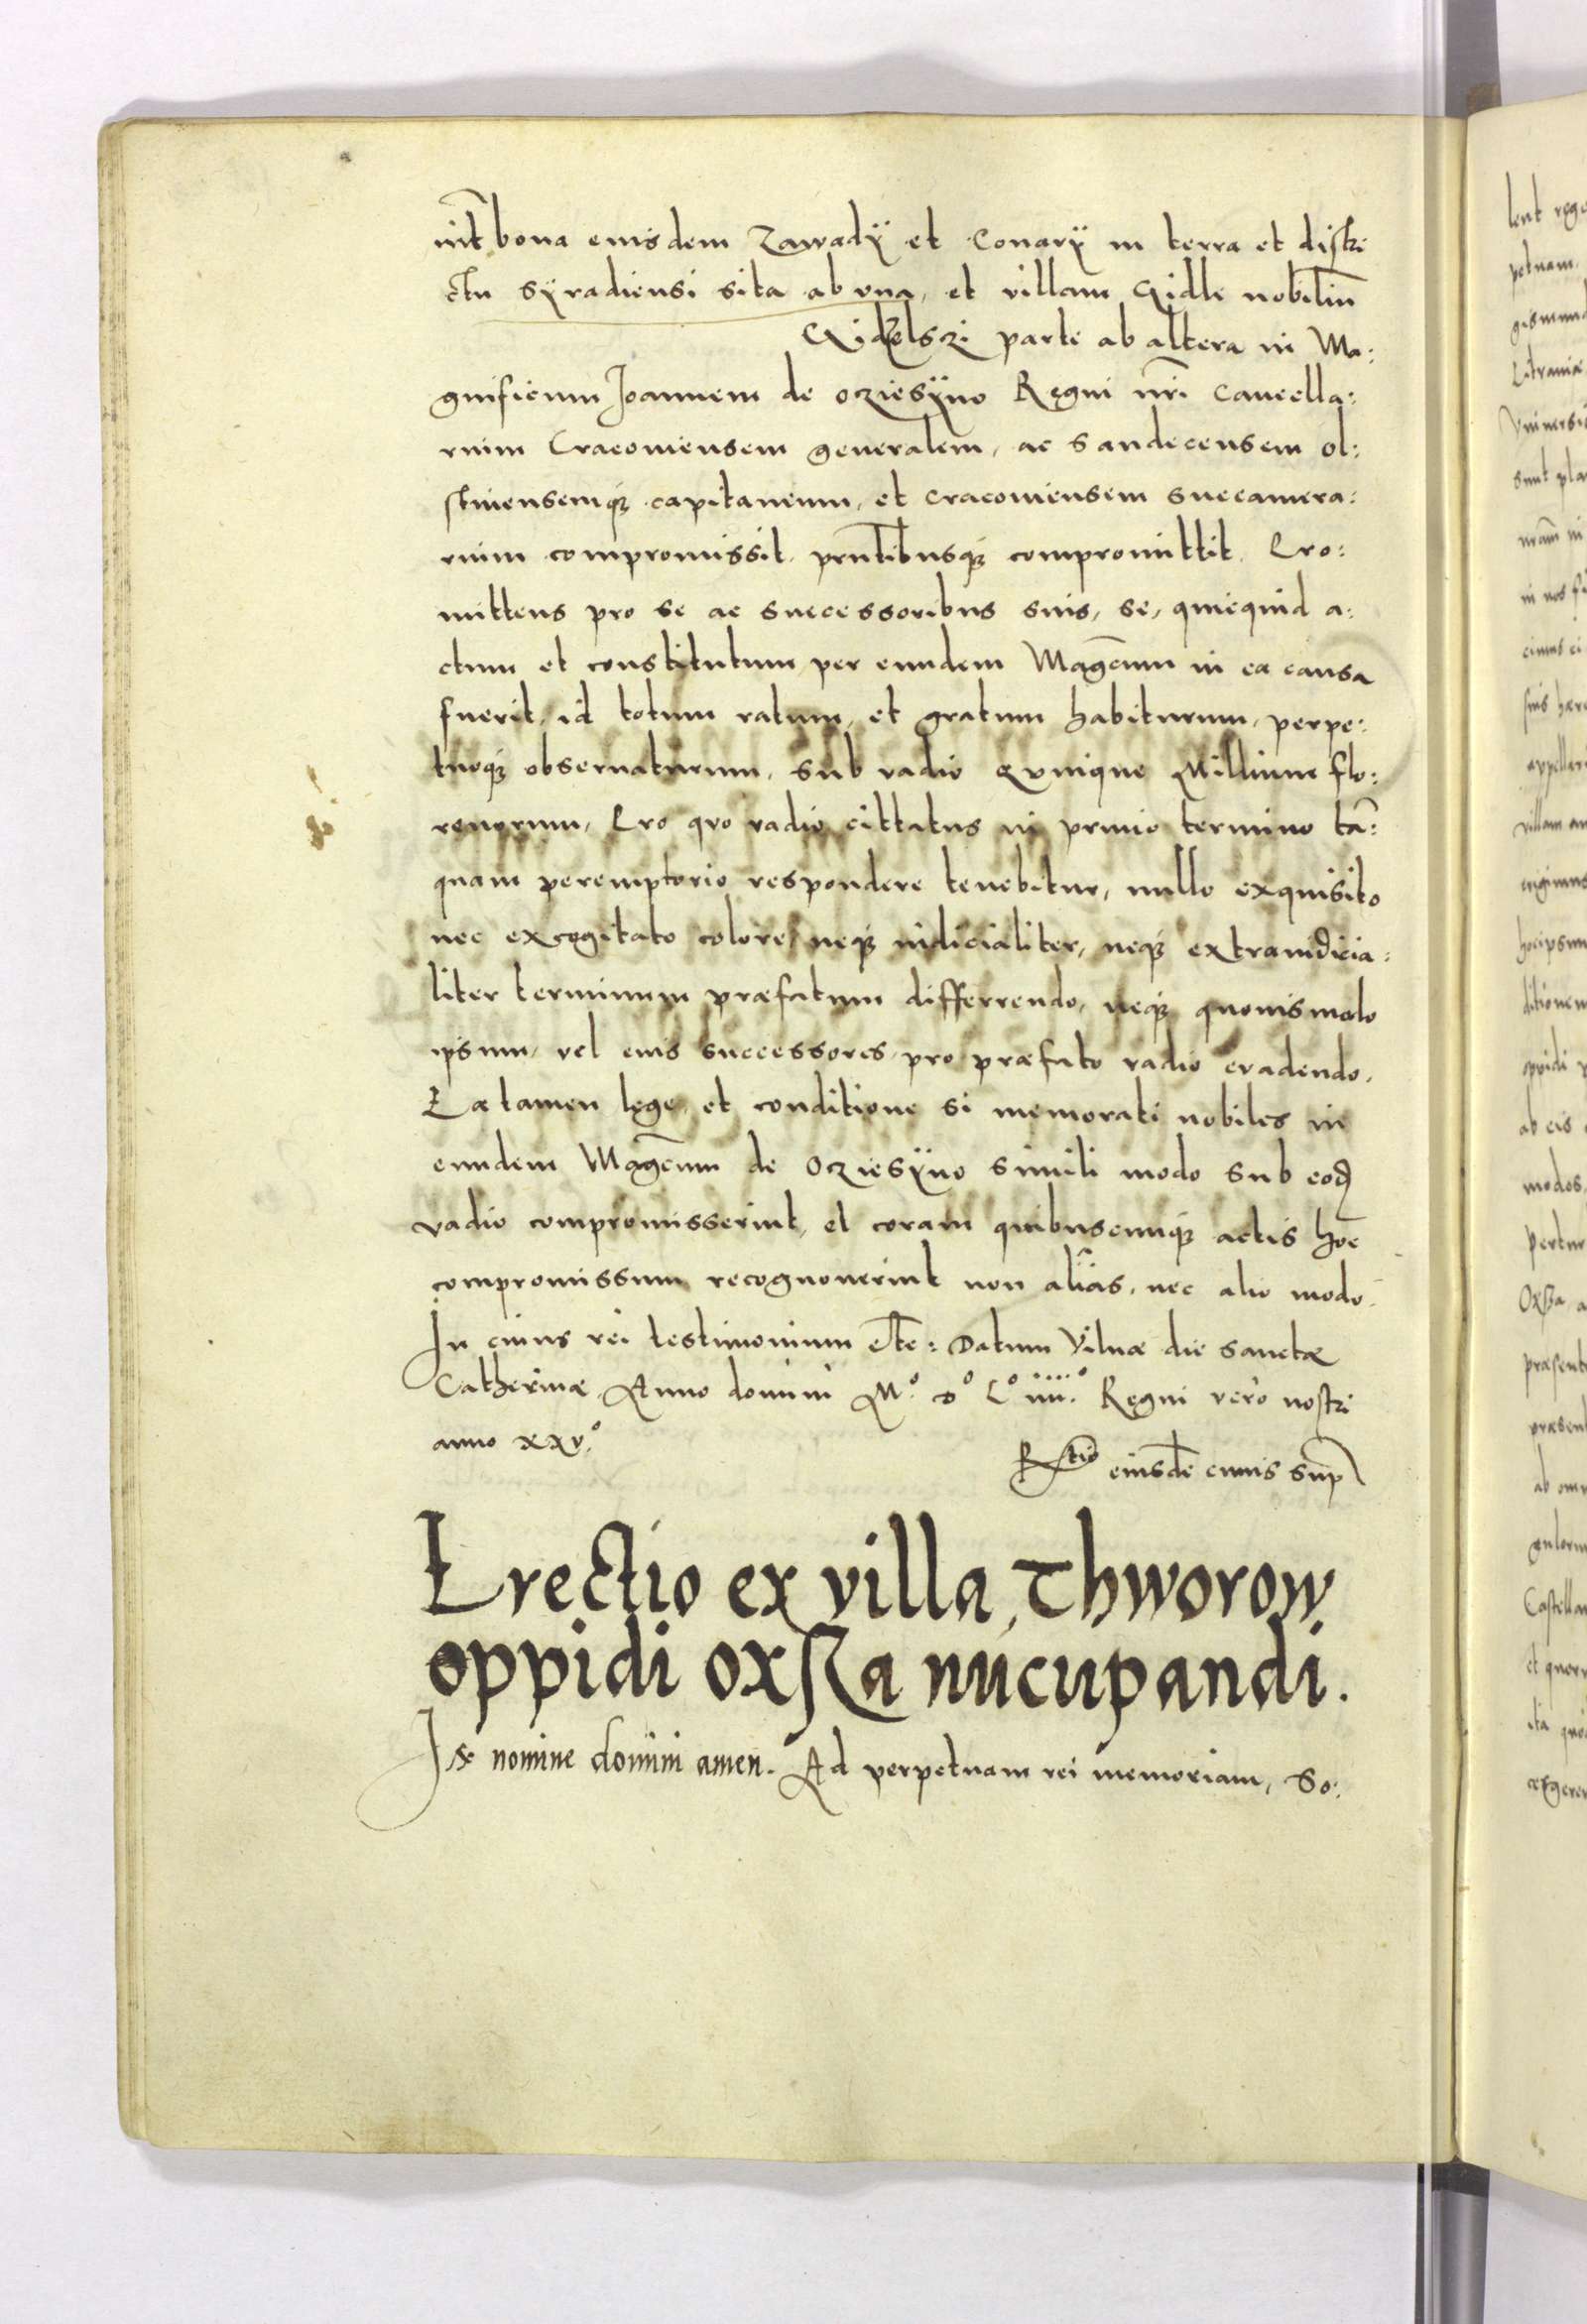 int̃ bona eiusdem Zawadÿ et Conarÿ in terra et distri
ctu Sÿradiensi sita ab vna, et villam Gidle nobiliũ
Gidzelszi parte ab altera in Ma:
gnificum Joannem de Oziesÿno Regni nr̃i Cancella:
rium Cracouiensem generalem, ac Sandecensem Ol:
stinensemq̃ capitaneum, et Cracouiensem Succamera:
rium compromissit prñtibusq̃ compromittit. Pro:
mittens pro se ac successoribus suis, se, quicquid a:
ctum et constitutum per eundem Magcũm in ea causa
fuerit, id totum ratum, et gratum habiturum, perpe:
tuoq̃ obseruaturum, sub vadio quinque Millium flo:
renorum, Pro quo vadio cittatus in primo termino tã:
quam peremptorio respondere tenebitur, nullo exquisito
nec excogitato colore, neq̃ iudicialiter, neq̃ extraiudicia:
liter terminum præfatum differrendo, neq̃ quouismodo
ipsum, vel eius successores, pro præfato vadio euadendo.
Ea tamen lege, et conditione si memorati nobiles in
eundem Magcũm de Oziesÿno simili modo sub eod̃
vadio compromisserint, et coram quibuscumq̃ actis hoc̃
compromissum recognouerint non aliãs, nec alio modo.
In cuius rei testimonium etc̃: Datum Vilnæ die sanctæ
Catherinæ, Anno domini Mº Dº Lº iiii.º Regni vero nostri
anno xxv.º
Rtio eiusdẽ cuius sup̃
Erectio ex villa, Thworow
oppidi Oxsza nũcupandi.
In nomine domini amen. Ad perpetuam rei memoriam, So:
lent rege
petuam
gismund
Litraniæ
Vniuersis
sunt pla
nrãm in
in nos fi
ciuus ei
suis hære
appellari
villam an
erigimus
hocipsum
ditionem
oppidi p
ab eis
modos,
pertur
Oxsza a
præsent
præsent
ab omn
gulorum
Castellan
et quoru
ita quod